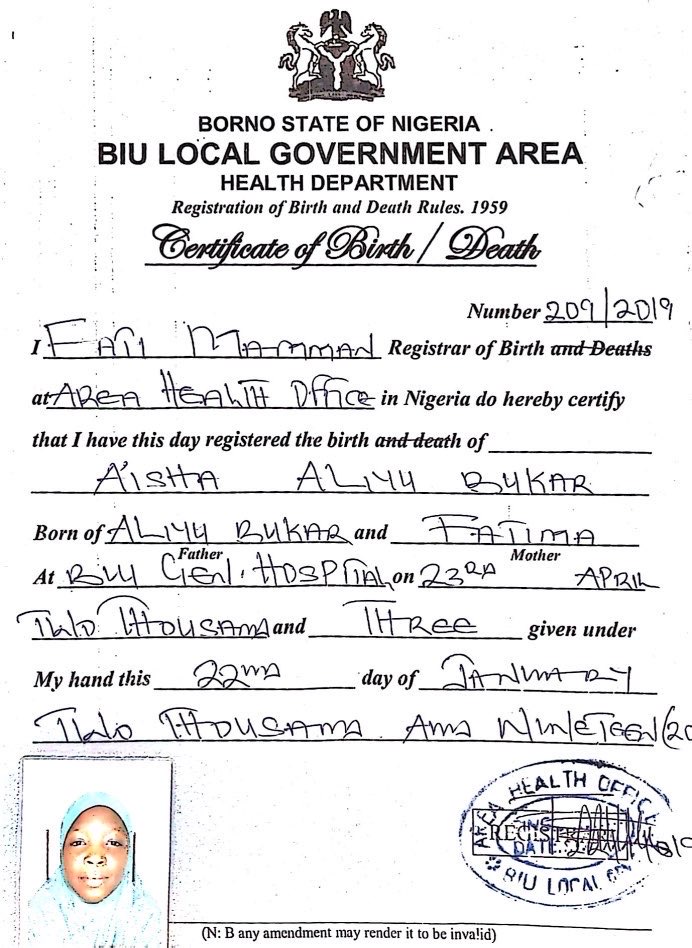 BORNO STATE OF NIGERIA
BIU LOCAL GOVERNMENT AREA
HEALTH DEPARTMENT
Registration of Birth and Death Rules. 1959
Certificate of Birth / Death
Number 209/2019
I FATI MAMMAN Registrar of Birth and Deaths
at AREA HEALTH OFFICE in Nigeria do hereby certify
that I have this day registered the birth and death of
AISHA ALIYU BUKAR
Born of ALIYU BUKAR and FATIMA
Father Mother
At BIU GEN. HOSPITAL on 23RD APRIL
TWO THOUSAND and THREE given under
My hand this 22ND day of JANUARY
TWO THOUSAND AND NINETEEN (20
AREA HEALTH OFFICE
REGISTRAR
DATE
BIU LOCAL
(N: B any amendment may render it to be invalid)